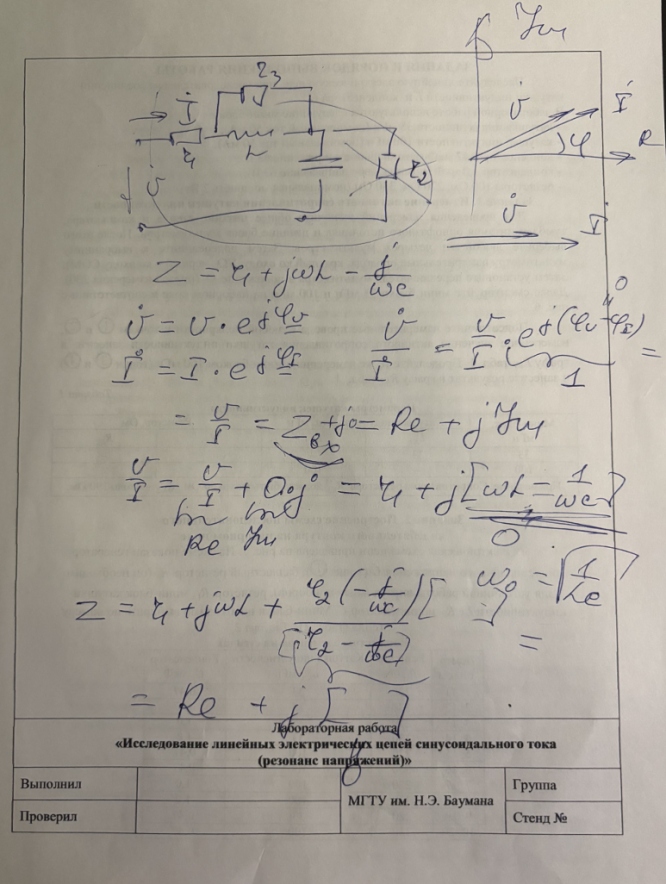 Jm
r3
İ
U̇
İ
r1
L
φ
R
r2
U̇
U̇
İ
Z = r1 + jωL - j/ωc
U̇ = U · e^jφu
U̇/İ = U/I · e^j(φu-φI) =
0
İ = I · e^jφI
1
= U/I = Zвх + j0 = Re + j Jm
U/I = U/I + 0·j = r1 + j[ωL = 1/ωc]
Re Jm
0
ω0 = √(1/Lc)
Z = r1 + jωL + r2(-j/ωc)[ ]/[r2 - j/ωc] =
= Re + j[ ]
0
Лабораторная работа
«Исследование линейных электрических цепей синусоидального тока
(резонанс напряжений)»
Выполнил
МГТУ им. Н.Э. Баумана
Группа
Проверил
Стенд №